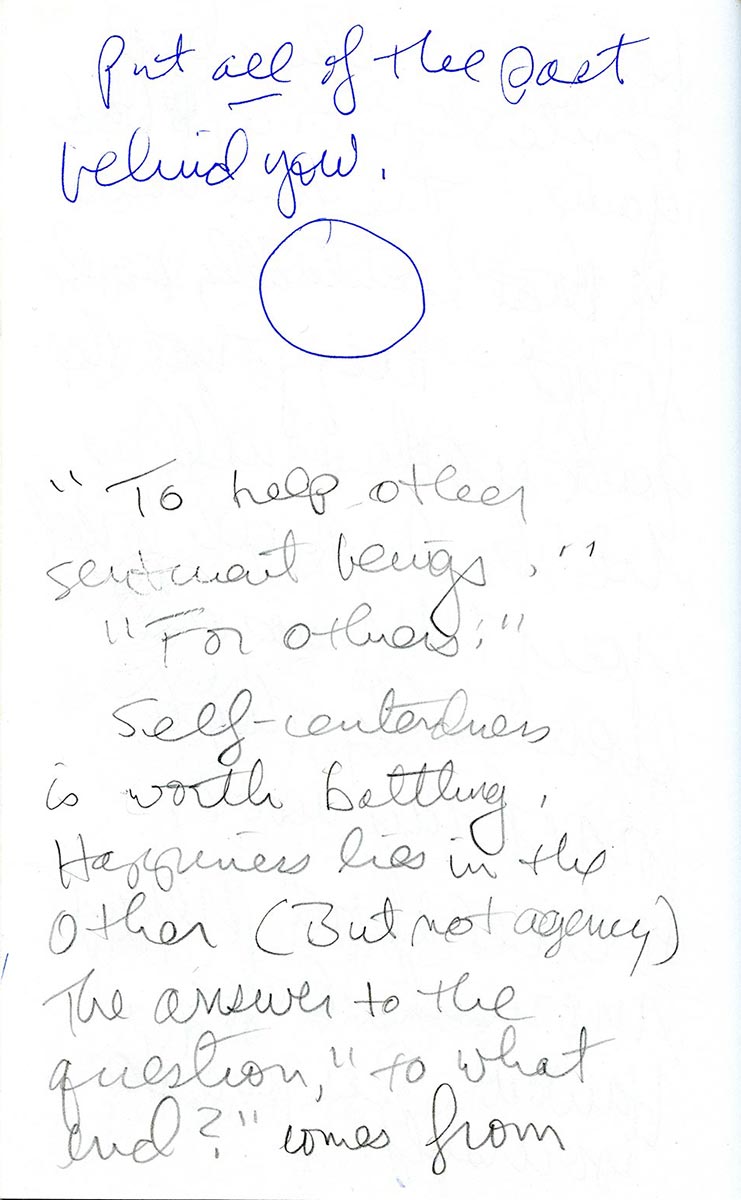 Put all of the past
behind you.
"To help other
sentient beings."
"For others:"
Self-centerdness
is worth battling.
Happiness lies in the
Other (But not agency)
The answer to the
question, "to what
end?" comes from